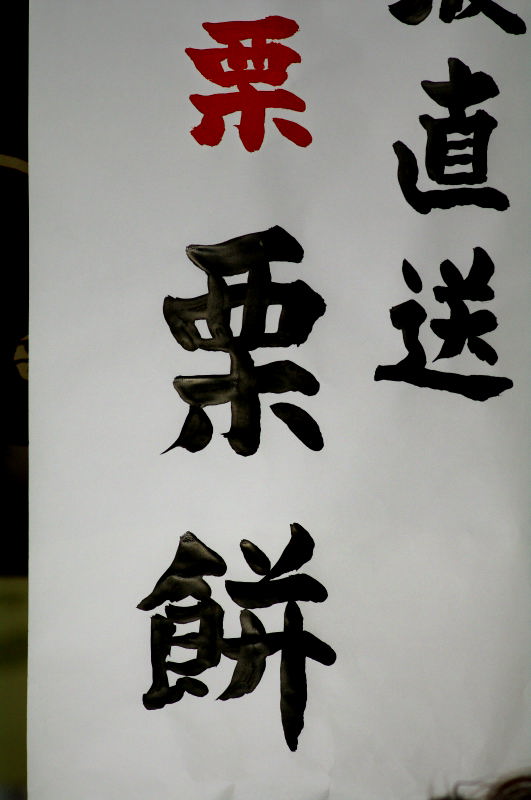 直送
栗
栗餅